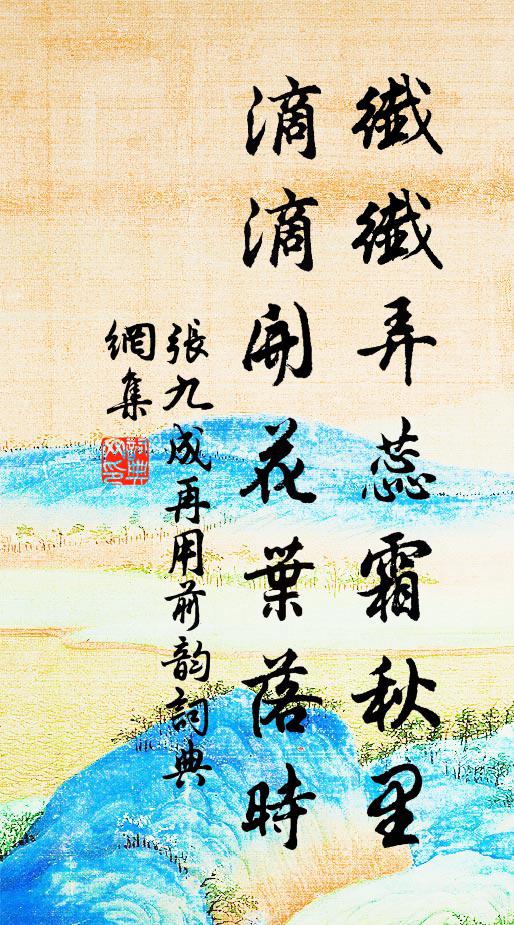 纖纖弄蕊霜秋里
滴滴開花葉落時
張九成再用前韵詞典
網集